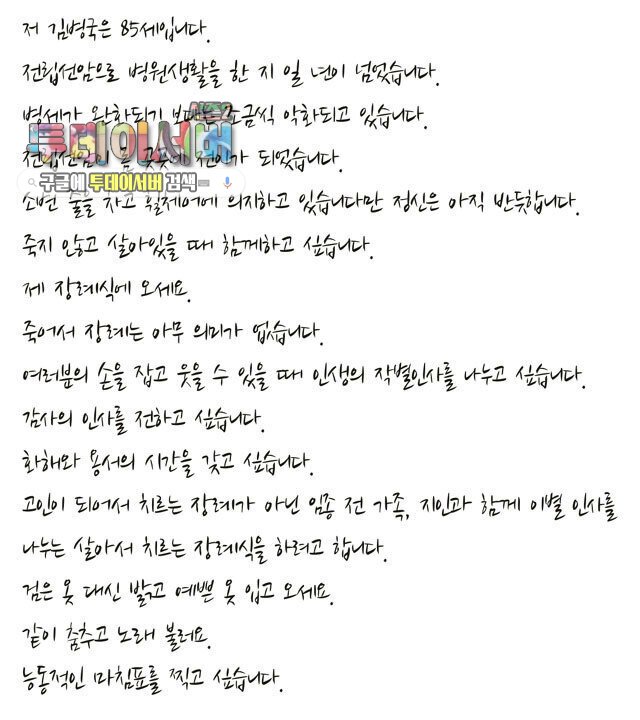 저 김병국은 85세입니다.
전립선암으로 병원생활을 한 지 일 년이 넘었습니다.
병세가 완화되기 보다는 조금씩 악화되고 있습니다.
투데이서버
전립선암이 몸 곳곳에 전이가 되었습니다.
구글에 투데이서버 검색
소변 줄을 차고 휠체어에 의지하고 있습니다만 정신은 아직 반듯합니다.
죽지 않고 살아있을 때 함께하고 싶습니다.
제 장례식에 오세요.
죽어서 장례는 아무 의미가 없습니다.
여러분의 손을 잡고 웃을 수 있을 때 인생의 작별인사를 나누고 싶습니다.
감사의 인사를 전하고 싶습니다.
화해와 용서의 시간을 갖고 싶습니다.
고인이 되어서 치르는 장례가 아닌 임종 전 가족, 지인과 함께 이별 인사를
나누는 살아서 치르는 장례식을 하려고 합니다.
검은 옷 대신 밝고 예쁜 옷 입고 오세요.
같이 춤추고 노래 불러요.
능동적인 마침표를 찍고 싶습니다.